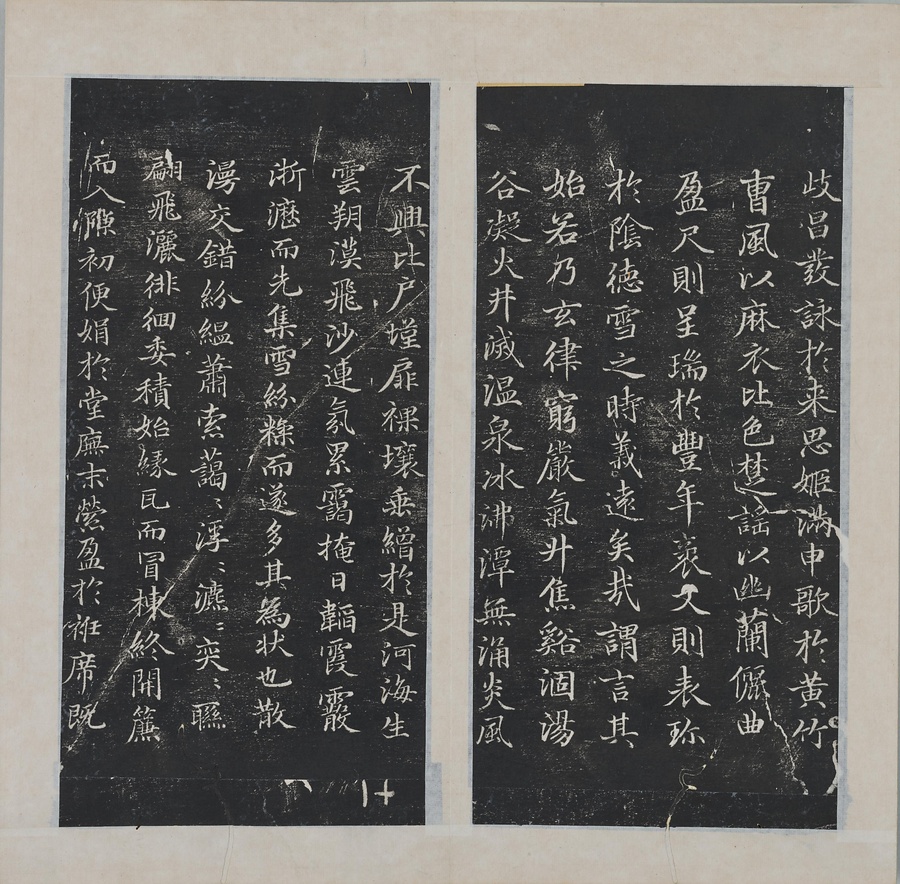 歧昌發詠於来思姬滿申歌於黄竹
曹風以麻衣比色楚謡以幽蘭儷曲
盈尺則呈瑞於豐年袤丈則表珎
於陰德雪之時義遠矣哉謂言其
始若乃玄律窮嚴氣升焦谿涸湯
谷凝火井滅温泉冰沸潭無涌炎風
不興比户墐扉裸壤垂繒於是河海生
雲朔漠飛沙連氛累靄掩日韜霞霰
淅瀝而先集雪紛糅而遂多其為状也散
漫交錯紛緼蕭索藹〻浮〻瀌〻奕〻聯
翩飛灑徘徊委積始緣瓦而冒棟終開簾
而入隙初便娟於堂廡末縈盈於帷席既